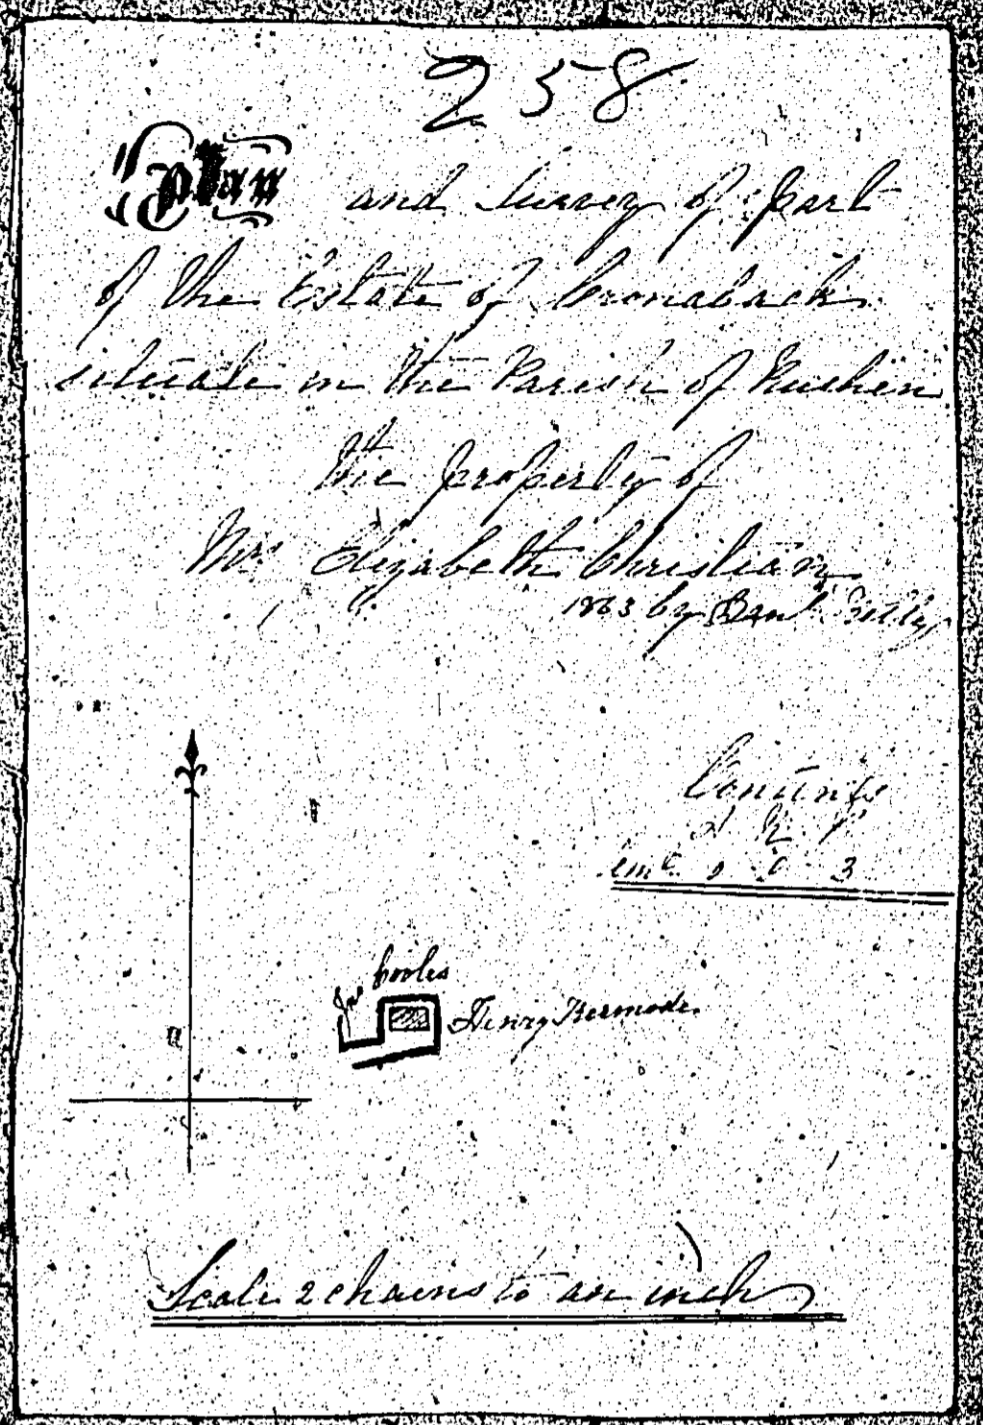 258
Plan and Survey of part
of the Estate of Cronaback
situate in the Parish of Rushen
the property of
Mrs Elizabeth Christian
1863 by
Contents
A R P
0 0 3
Jas Cooles
Henry Kermode
Scale 2 chains to an inch